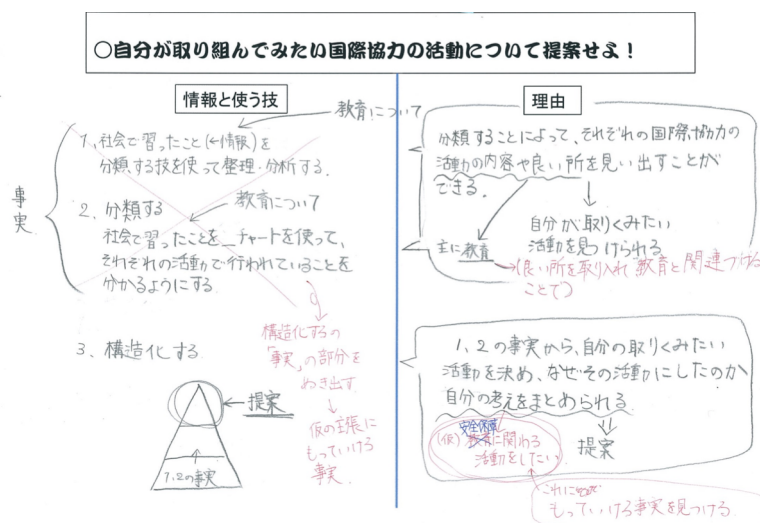 ○自分が取り組んでみたい国際協力の活動について提案せよ！
情報と使う技
教育について
1、社会で習ったこと(←情報)を
分類する技を使って整理・分析する。
事実
2、分類する
教育について
社会で習ったことを__チャートを使って、
それぞれの活動で行われていることを
分かるようにする。
構造化するの
「事実」の部分を
ぬき出す
↓
仮の主張に
もっていける
事実。
3、構造化する
←提案
1.2の事実
理由
分類することによって、それぞれの国際協力の
活動の内容や良い所を見い出すことが
できる。
自分が取りくみたい
活動を見つけられる
主に教育
→(良い所を取り入れ 教育と関連づける
ことで)
1、2の事実から、自分の取りくみたい
活動を決め、なぜその活動にしたのか
自分の考えをまとめられる
提案
安全保障
(仮) 教育に関わる
活動をしたい。
これに
もっていける事実を見つける